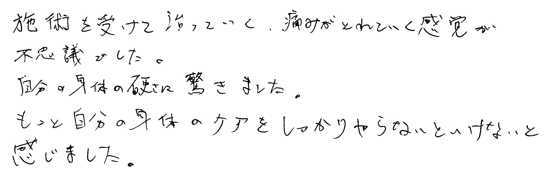 施術を受けて治っていく、痛みがとれていく感覚が
不思議でした。
自分の身体の硬さに驚きました。
もっと自分の身体のケアをしっかりやらないといけないと
感じました。